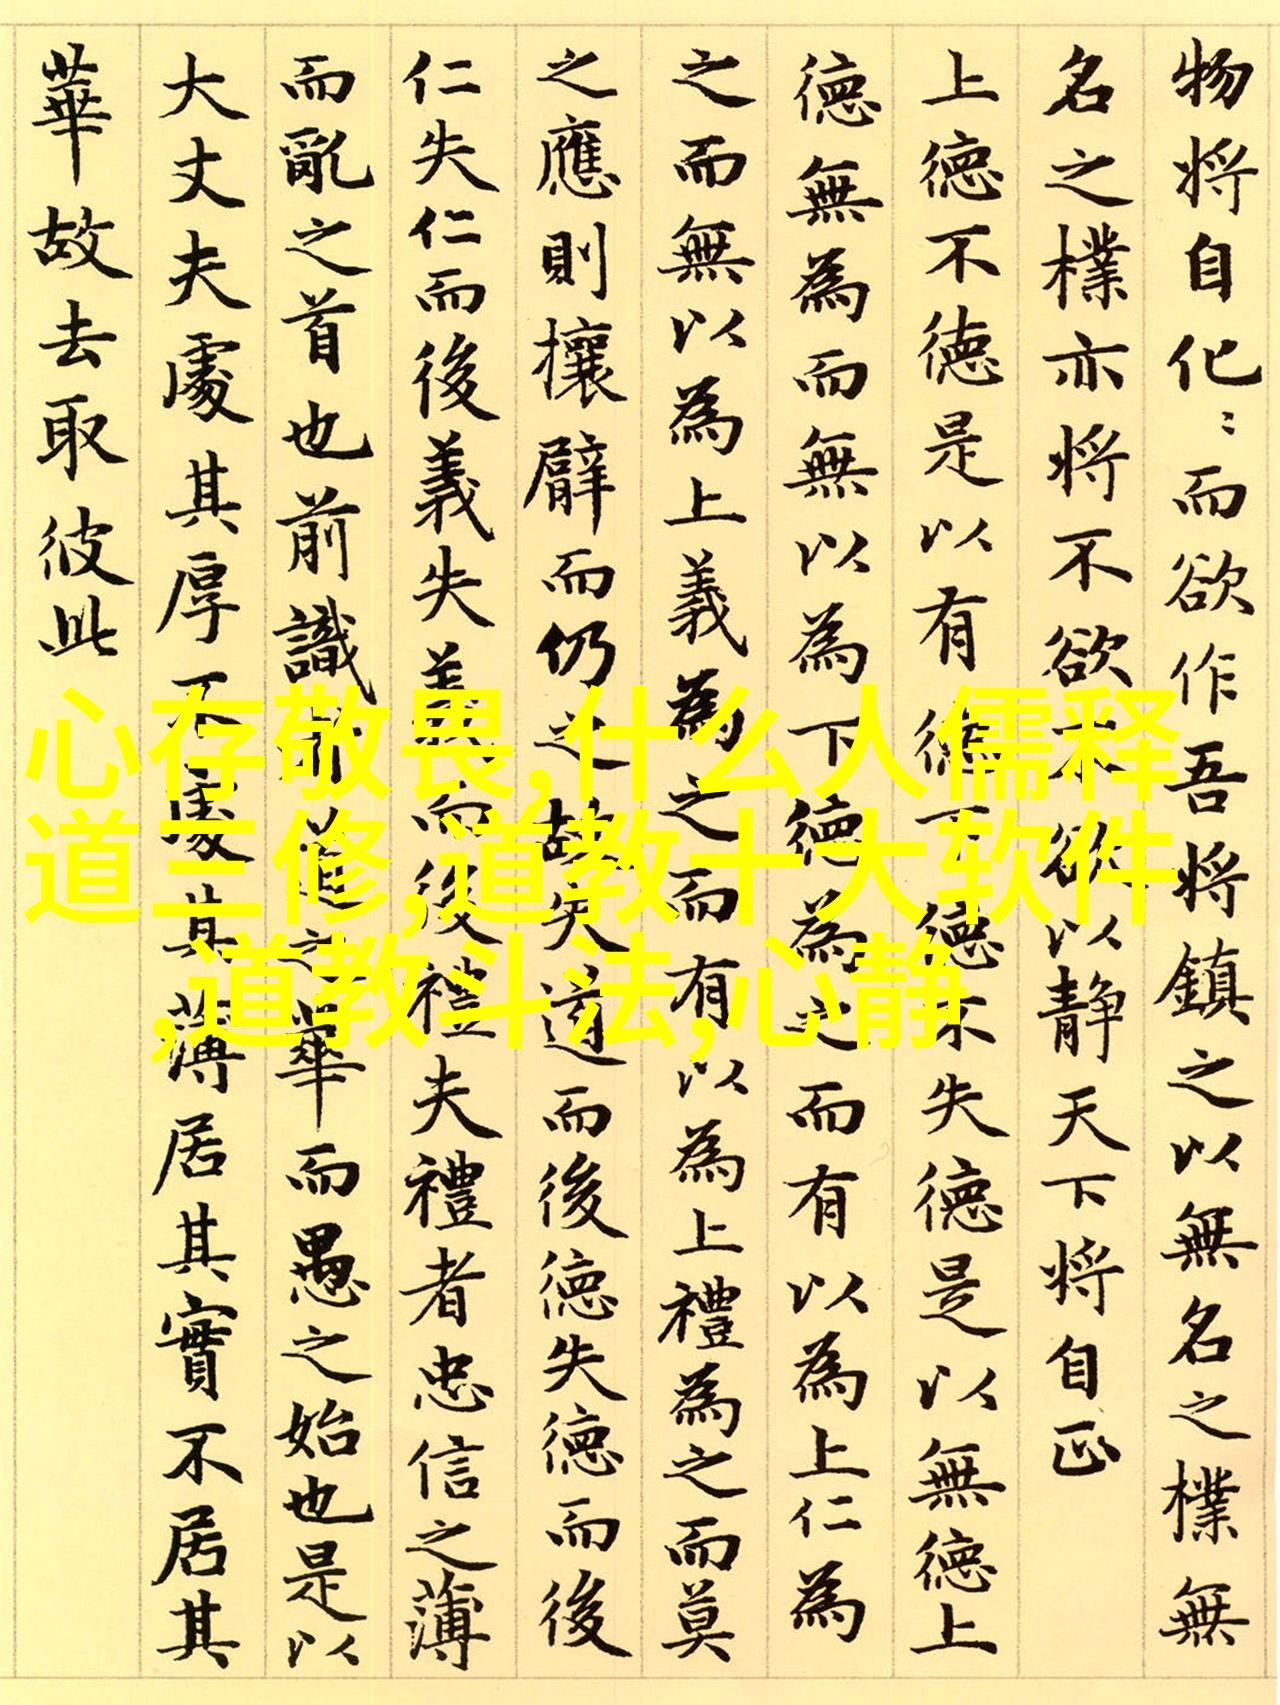 物将自化〻而欲作吾将鎮之以無名之樸無
名之樸亦将不欲不欲以静天下将自正
上德不德是以有德下德不失德是以無德上
德無為而無以為下德為之而有以為上仁為
之而無以為上義為之而有以為上禮為之而莫
之應則攘臂而仍之故失道而後德失德而後
仁失仁而後義失義而後禮夫禮者忠信之薄
而亂之首也前識者道之華而愚之始也是以
大丈夫處其厚不處其薄居其實不居其
華故去取彼此
心存敬畏,什么人儒释
道三修,道教十大软件
,道教斗法,心静